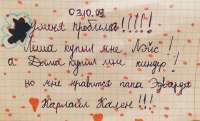 03.10.09
у меня проблема!!!!!
Лиша купил мне Лэйс!
а Дима купил мне киндер!
но мне нравится папа Эдварда
Карлайл Кален!!!